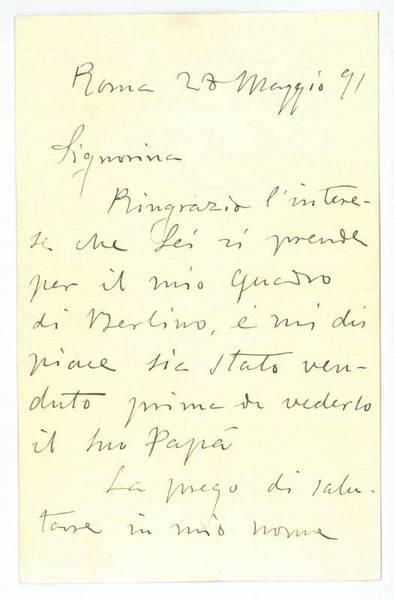 Roma 27 Maggio 91
Signorina
Ringrazio l'interes-
se che Lei si prende
per il mio Quadro
di Berlino, e mi dis
piace sia stato ven-
duto prima di vederlo
il suo Papà
La prego di salu-
tare in mio nome